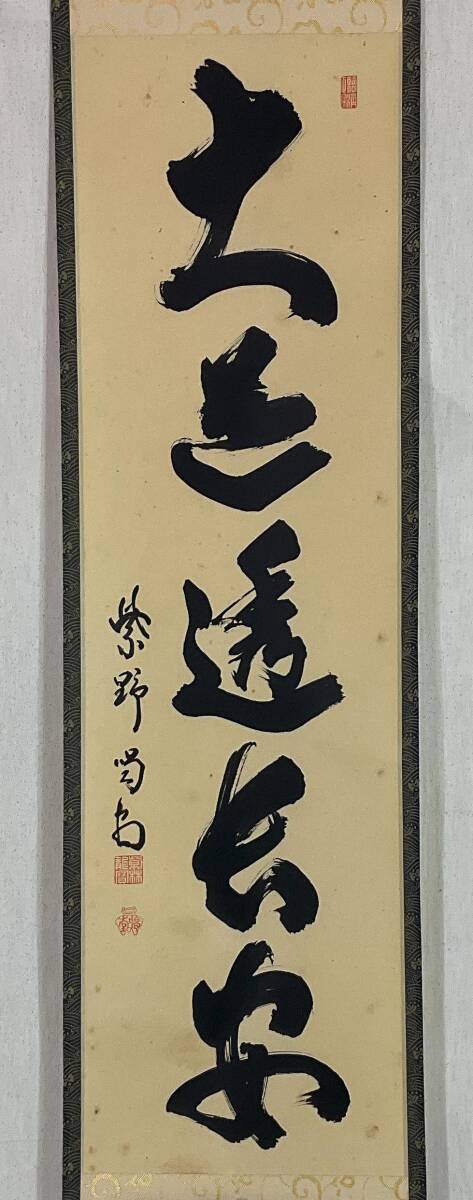 大道透長安
紫野